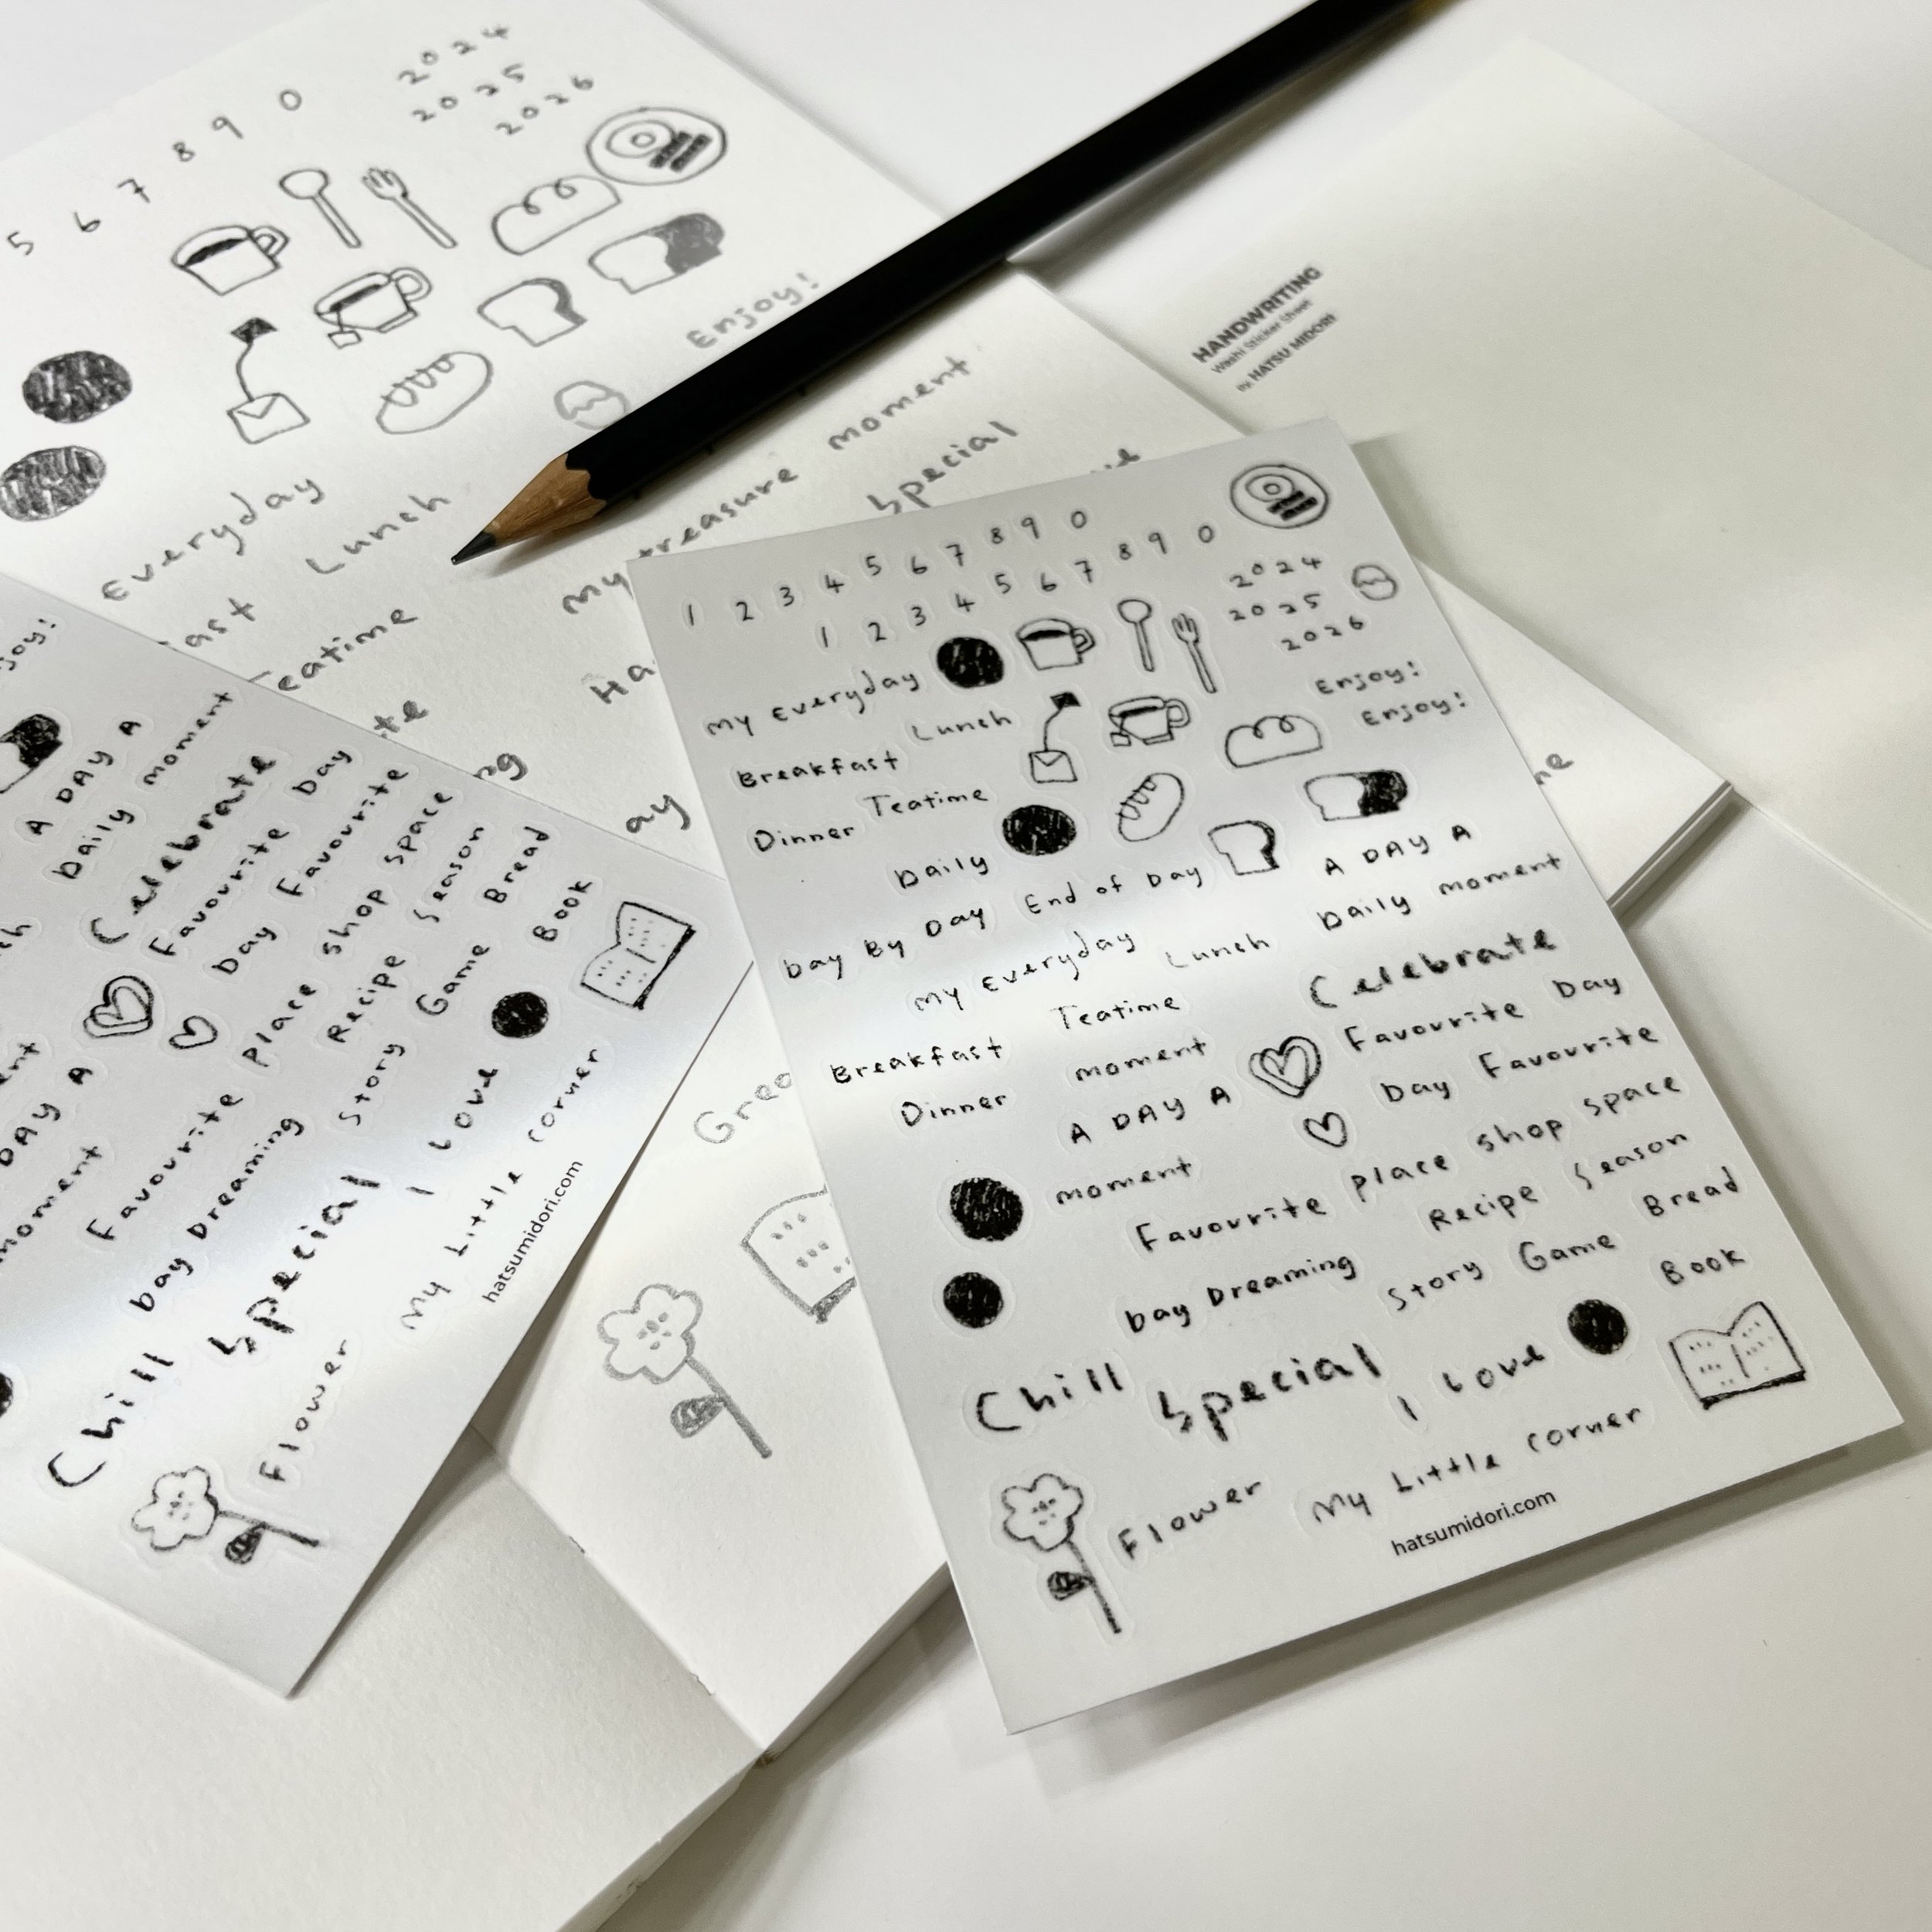 2024
2025
2026
5 6 7 8 9 0
Enjoy!
Everyday
Lunch
Teatime
moment
My treasure
Special
HANDWRITING
Washi Sticker Sheet
By HATSU MIDORI
1 2 3 4 5 6 7 8 9 0
1 2 3 4 5 6 7 8 9 0
2024
2025
2026
My Everyday
Enjoy!
Lunch
Enjoy!
Breakfast
Teatime
Dinner
Daily
A DAY A
End of Day
Daily moment
Day By Day
My Everyday
Lunch
Celebrate
Teatime
Favourite Day
Breakfast
moment
Day Favourite
Dinner
A DAY A
moment
Favourite place shop space
Recipe Season
Day Dreaming
Story Game Bread
Book
Chill Special
I Love
Flower
My Little corner
hatsumidori.com
A DAY A
Daily moment
Celebrate
Favourite Day
Day Favourite
DAY A
moment
Favourite Place shop space
Recipe Season
Day Dreaming
Story Game Bread
Book
Chill Special
I Love
Flower
My Little corner
hatsumidori.com